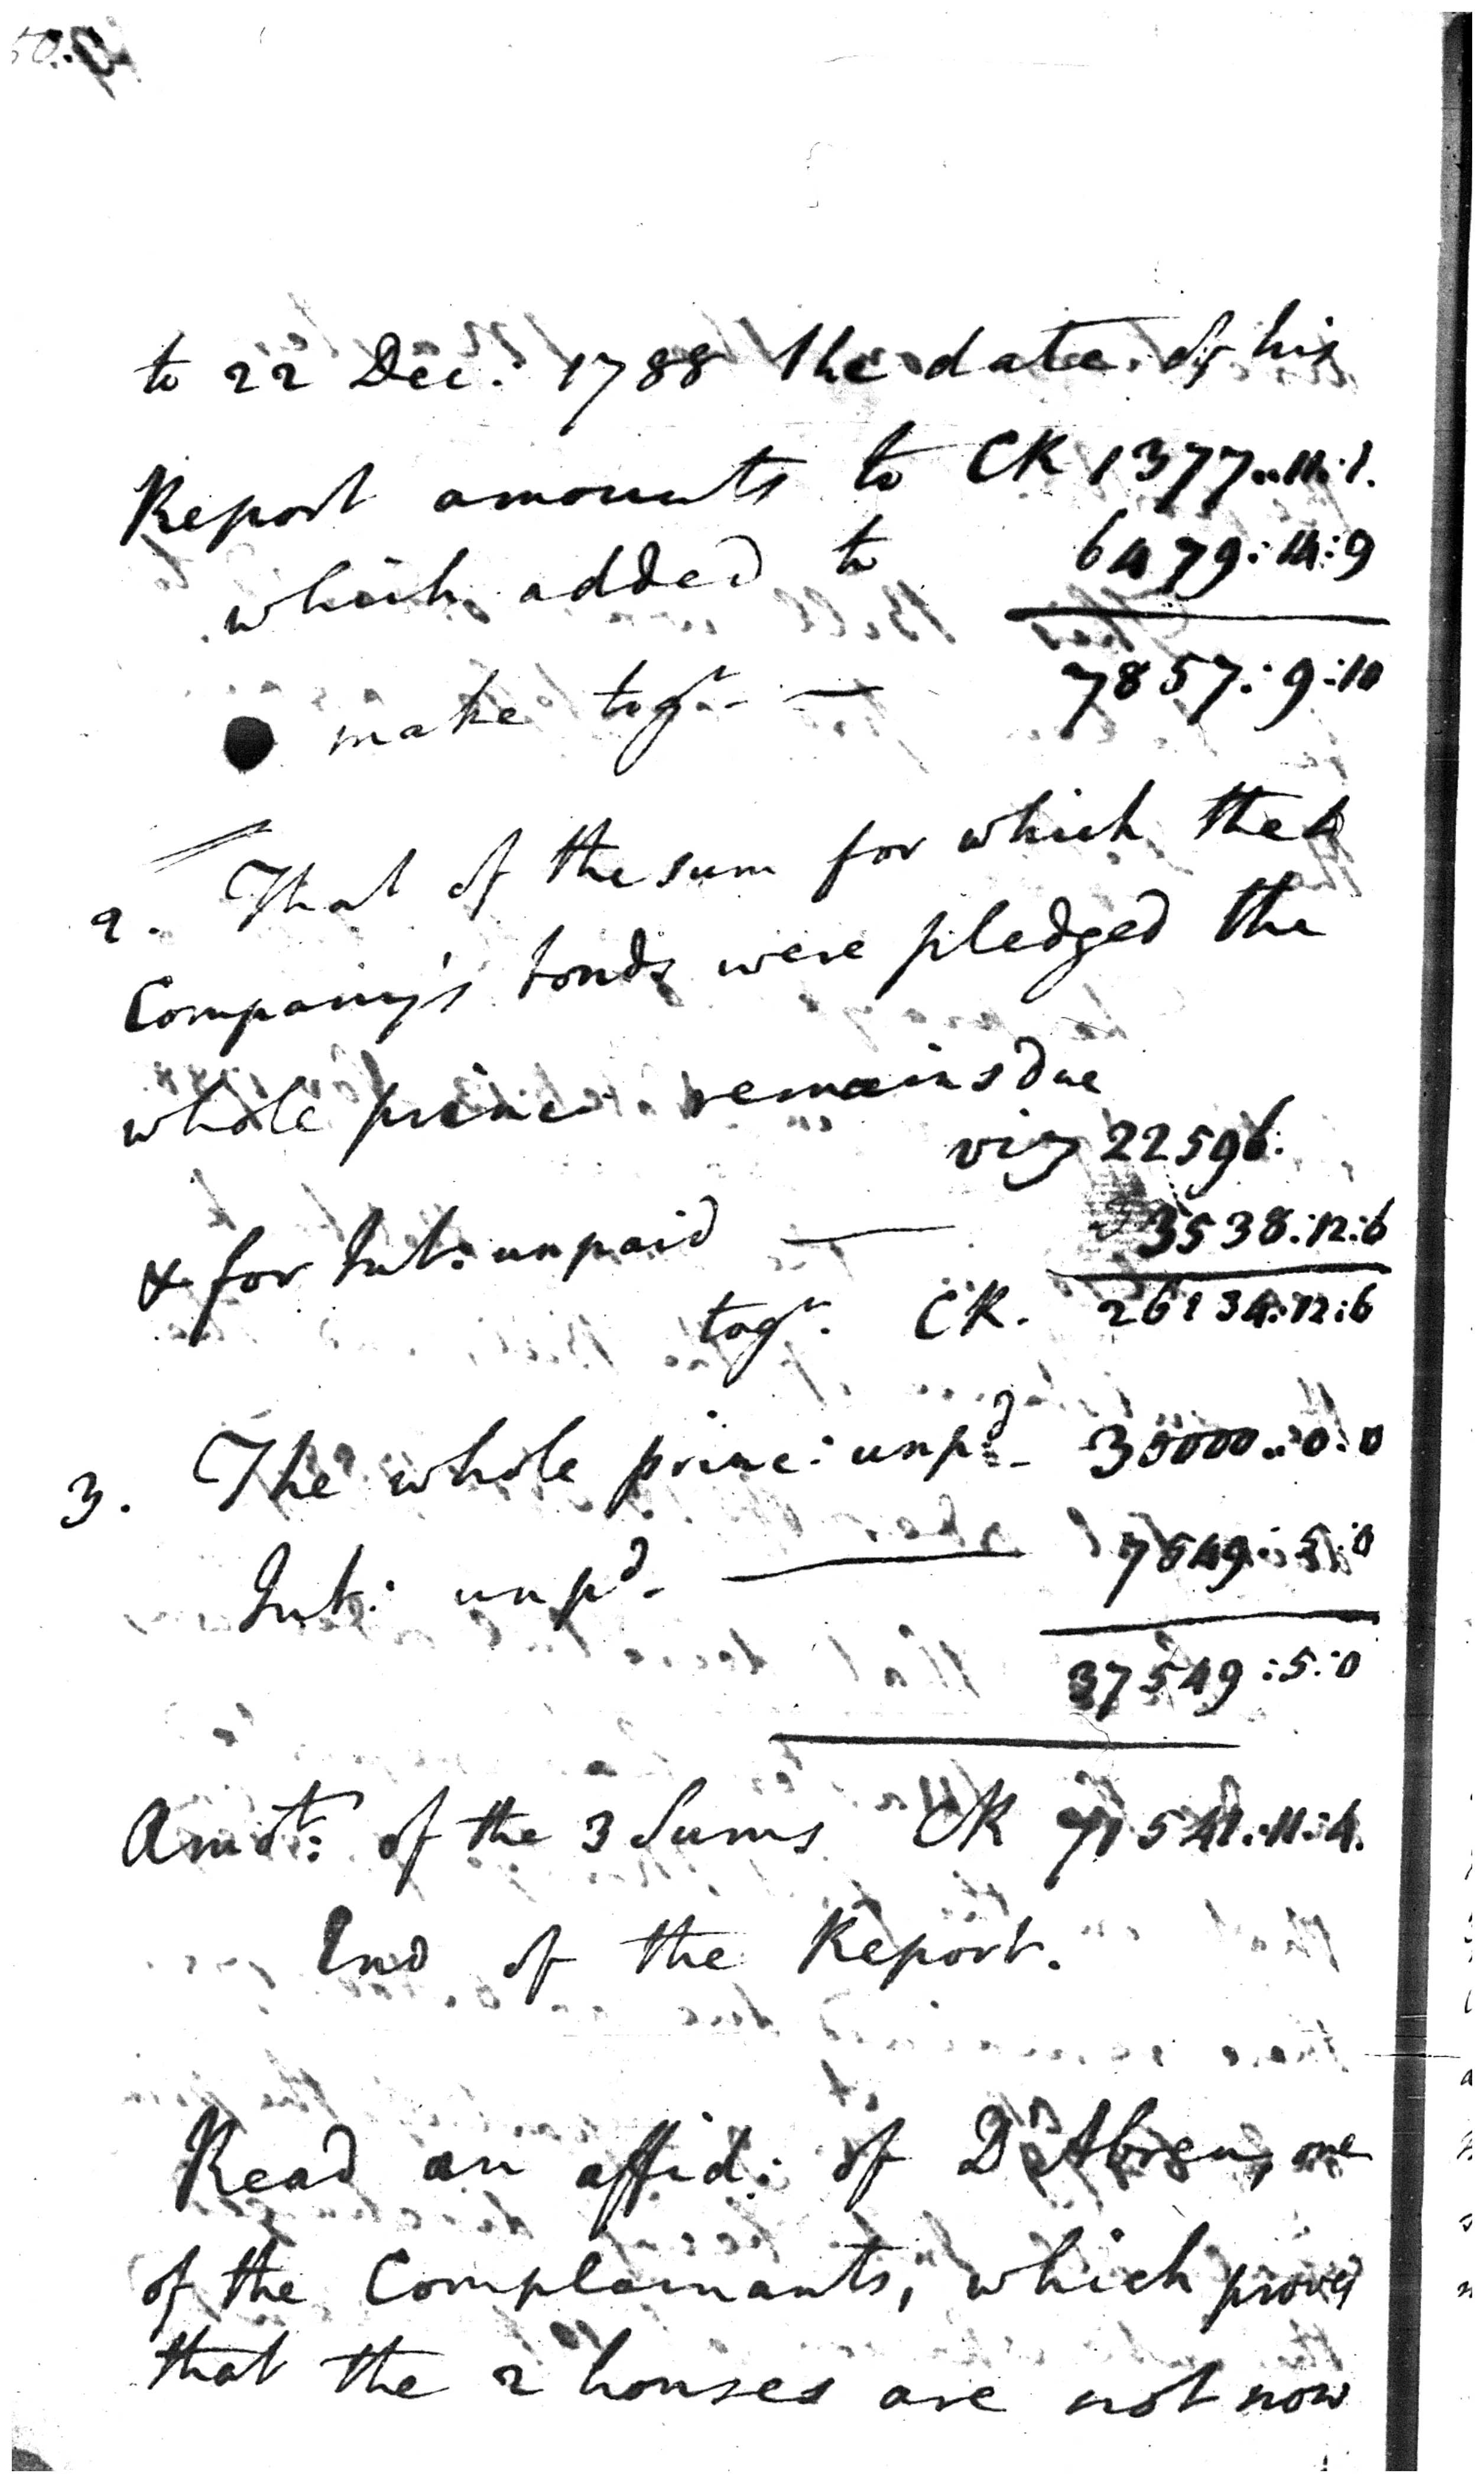 50.
to 22 Dec: 1788 the date of his
Report amounts to CK 1377..11..1.
which added to 6479:14:9
make togr. — 7857:9:10
2. That of the sum for which the
Company's bonds were pledged the
whole princ: remains due
viz 22596.
& for Int: unpaid — 3538:12:6
togr. CK. 26134:12:6
3. The whole princ: unpd. 30000..0:0
Int: unpd. — 7549:5:0
37549:5:0
Amot: of the 3 Sums CK 71541:11:4.
End of the Report.
Read an affid: of D'Abreu, one
of the Complainants, which proves
that the 2 houses are not now